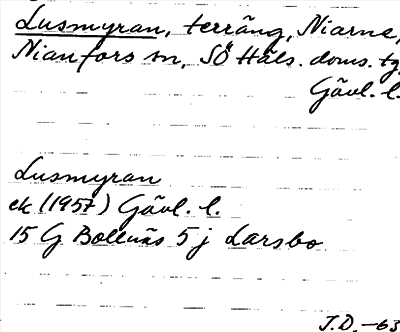 Lusmyran, terräng, Niarne,
Nianfors sn, SÖ Häls. doms. tg,
Gävl. l.
Lusmyran
ek (1957) Gävl. l.
15 G Bollnäs 5 j Larsbo
J.D. -63